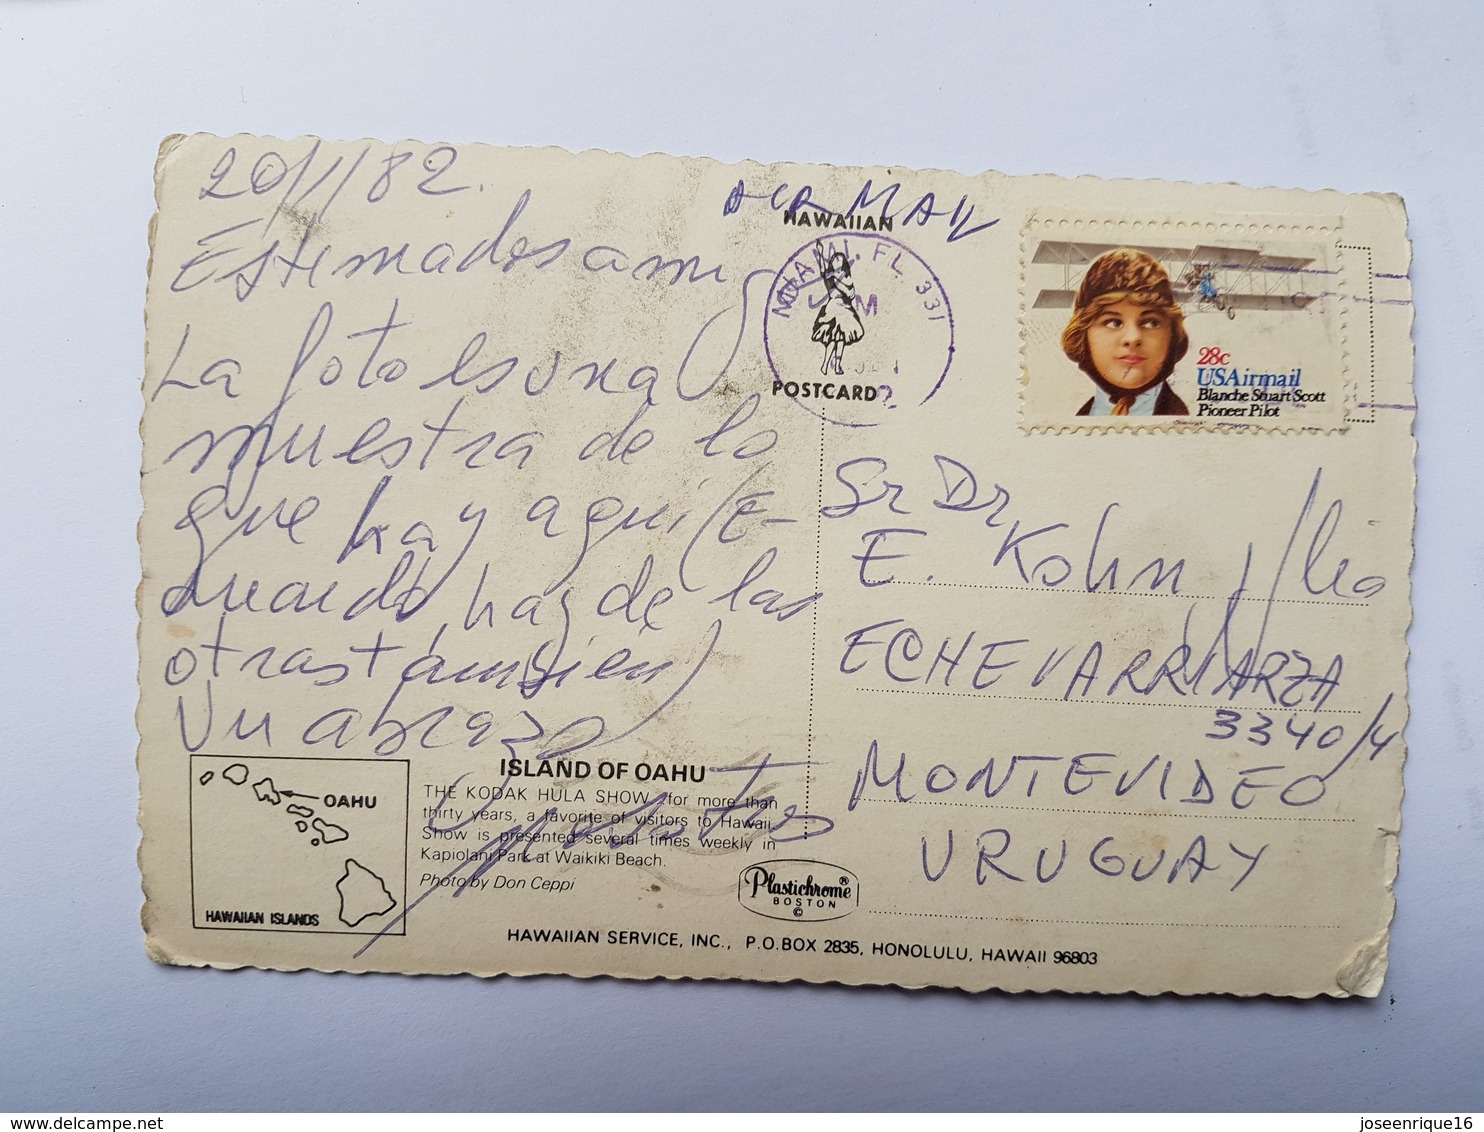 20/1/82.
Estimados amig
La foto es una
muestra de lo
que hay aqui (E-
duardo, hay de las
otras tambien)
Un abrazo
AIR MAIL
HAWAIIAN
POSTCARD
MIAMI, FL. 331
28c
USAirmail
Blanche Stuart Scott
Pioneer Pilot
Sr Dr
E. Kohn
ECHEVARRIARZA
3340/4
MONTEVIDEO
URUGUAY
OAHU
HAWAIIAN ISLANDS
ISLAND OF OAHU
THE KODAK HULA SHOW, for more than
thirty years, a favorite of visitors to Hawaii.
Show is presented several times weekly in
Kapiolani Park at Waikiki Beach.
Photo by Don Ceppi
Plastichrome®
BOSTON
©
HAWAIIAN SERVICE, INC., P.O.BOX 2835, HONOLULU, HAWAII 96803
delcampe.net
joseenrique16